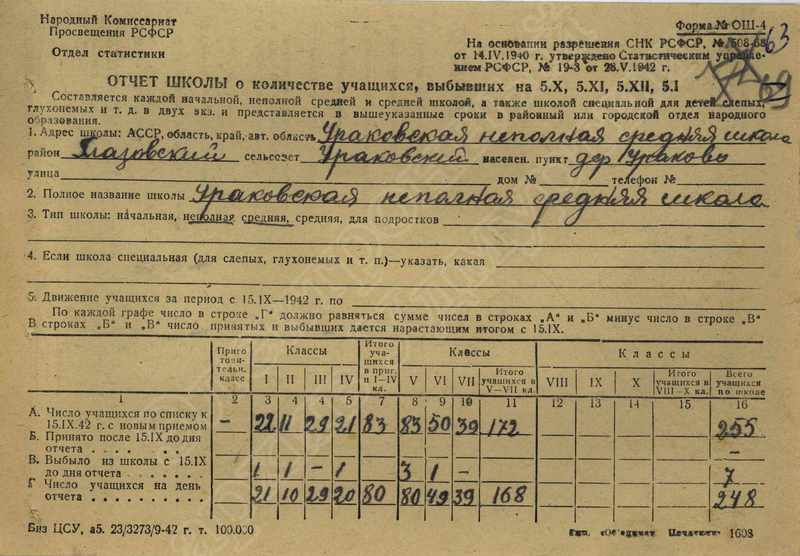 Народный Комиссариат
Просвещения РСФСР
Отдел статистики
Форма № ОШ-4
63
69
На основании разрешения СНК РСФСР, № 508-68
от 14.IV.1940 г. утверждено Статистическим управле-
нием РСФСР, № 19-3 от 28.V.1942 г.
ОТЧЕТ ШКОЛЫ о количестве учащихся, выбывших на 5.X, 5.XI, 5.XII, 5.I
Составляется каждой начальной, неполной средней и средней школой, а также школой специальной для детей слепых,
глухонемых и т. д. в двух экз. и представляется в вышеуказанные сроки в районный или городской отдел народного
образования.
1. Адрес школы: АССР, область, край, авт. область Ураковская неполная средняя школа
район Глазовский сельсовет Ураковский населен. пункт дер Ураково
улица дом № телефон №
2. Полное название школы Ураковская неполная средняя школа
3. Тип школы: начальная, неполная средняя, средняя, для подростков
4. Если школа специальная (для слепых, глухонемых и т. п.)—указать, какая
5. Движение учащихся за период с 15.IX—1942 г. по
По каждой графе число в строке „Г“ должно равняться сумме чисел в строках „А“ и „Б“ минус число в строке „В“
В строках „Б“ и „В“ число принятых и выбывших дается нарастающим итогом с 15.IX.
Приготовительн. класс Классы Итого учащихся в приг. и I—IV кл. Классы Классы
I II III IV V VI VII Итого учащихся в V—VII кл. VIII IX X Итого учащихся в VIII—X кл. Всего учащихся по школе
1 2 3 4 4 5 7 8 9 10 11 12 13 14 15 16
А. Число учащихся по списку к
15.IX.42 г. с новым приемом – 22 11 29 21 83 83 50 39 172 255
Б. Принято после 15.IX до дня
отчета . . . . . . –
В. Выбыло из школы с 15.IX
до дня отчета . . . . . . . 1 1 – 1 3 1 – 7
Г Число учащихся на день
отчета . . . . . . . . . . 21 10 29 20 80 80 49 39 168 248
Биз ЦСУ, а5. 23/3273/9-42 г. т. 100.000
Тип. «Об'единен. Печатник» 1698